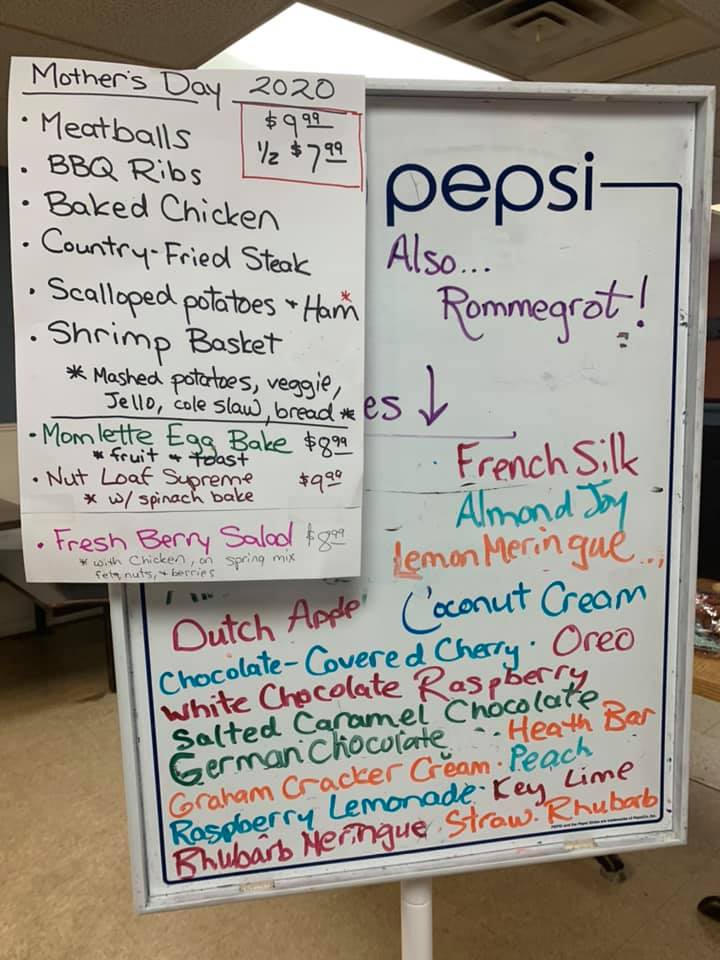 Mother's Day 2020
$9.99
1/2 $7.99
• Meatballs
• BBQ Ribs
• Baked Chicken
• Country-Fried Steak
• Scalloped potatoes + Ham*
• Shrimp Basket
* Mashed potatoes, veggie,
Jello, cole slaw, bread *
• Momlette Egg Bake $8.99
* fruit + toast
• Nut Loaf Supreme $9.99
* w/ spinach bake
• Fresh Berry Salad $8.99
* with Chicken, on spring mix
feta, nuts, + berries
pepsi
Also...
Rommegrot!
es ↓
· French Silk
Almond Joy
Lemon Meringue...
Dutch Apple Coconut Cream
Chocolate-Covered Cherry · Oreo
White Chocolate Raspberry
Salted Caramel Chocolate
German Chocolate · Heath Bar
Graham Cracker Cream · Peach
Raspberry Lemonade · Key Lime
Rhubarb Meringue · Straw-Rhubarb